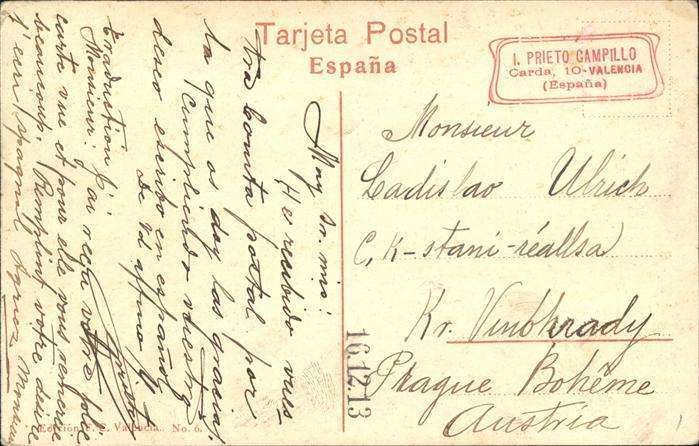 Tarjeta Postal
España
I. PRIETO CAMPILLO
Carda, 10-VALENCIA
(España)
Monsieur
Ladislao Ulrich
C. K-stani-réallsa
Kr. Vinohrady
Prague Bohême
Austria
16.12.13
Muy Sr. mio:
He recibido vues-
tra bonita postal por
la que os doy las gracias,
Cumpliendo vuestro
deseo escribo en español
De Vd affmo
Traduction
Monsieur: J'ai reçu votre jolie
carte vue et pour elle vous remercie
beaucoup. Remplint votre desir
j'ecri espagnol
Edición F. C. Valencia. No. 6.